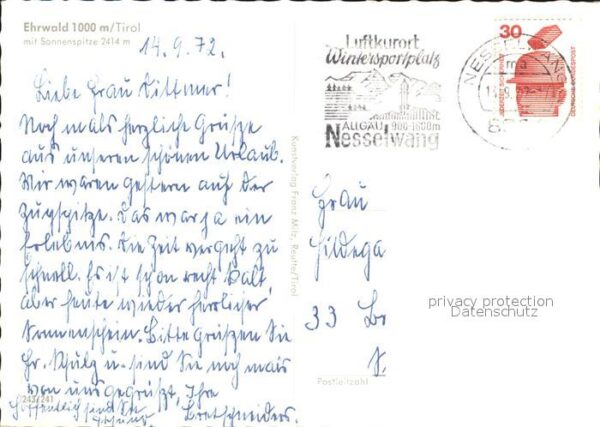 Ehrwald 1000 m/Tirol
mit Sonnenspitze 2414 m
14.9.72.
Liebe Frau Dittmer!
Nochmals herzliche Grüsse
aus unseren schönen Urlaub.
Wir waren gestern auf der
Zugspitze. Das war ja ein
Erlebnis. Die Zeit vergeht zu
schnell. Es ist schon recht kalt,
aber heute wieder herrlicher
Sonnenschein. Bitte grüßen Sie
Hr. Schulz u. sind Sie noch mals
von uns gegrüßt, Ihre
Bretschneiders.
Hoffentlich sind Sie
gesund.
243/241
Kunstverlag Franz Milz, Reutte/Tirol
Luftkurort
Wintersportplatz
ALLGÄU 900-1600m
Nesselwang
NESSELWANG
30
DEUTSCHE BUNDESPOST
Frau
Hildega
33 Br
privacy protection
Datenschutz
Postleitzahl